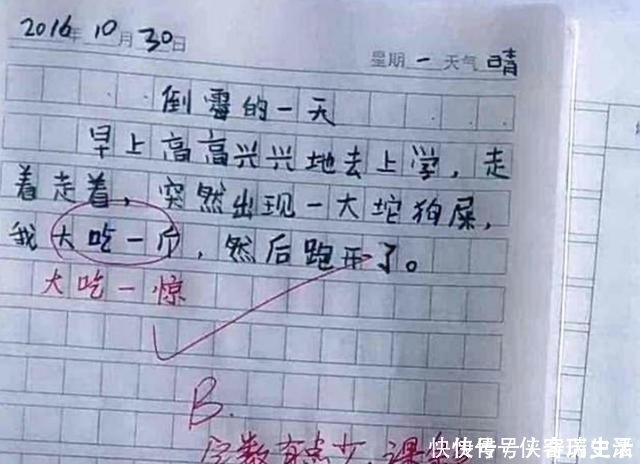 2016年10月30日 星期一天气晴
倒霉的一天
早上高高兴兴地去上学，走
着走着，突然出现一大坨狗屎，
我大吃一斤，然后跑开了。
大吃一惊
B.
字数有点少,课